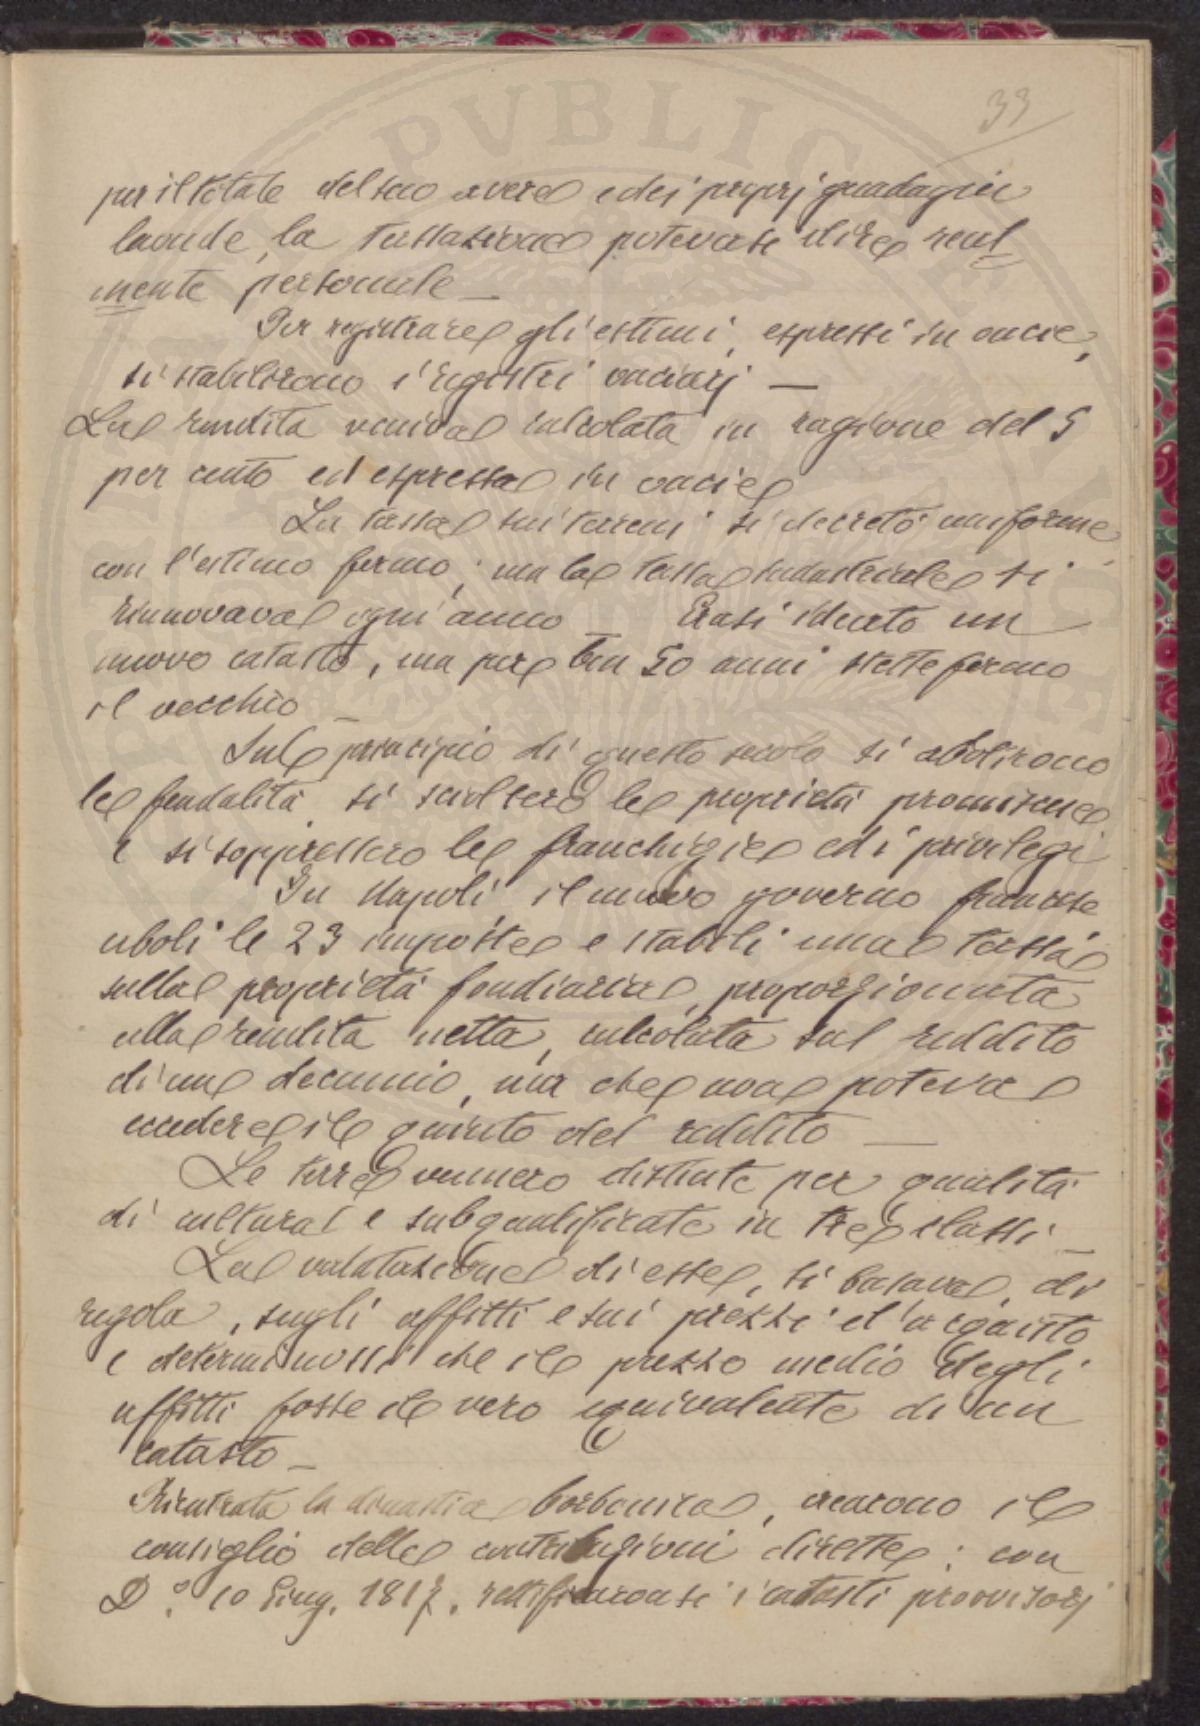 33
per il totale del suo avere e dei proprj guadagni
laonde, la tassazione potevasi dire real
mente personale —
Per registrare gli estimi, espressi in oncie,
si stabilirono i registri onciarj —
La rendita veniva calcolata in ragione del 5
per cento ed espressa in oncie
La tassa sui terreni si decretò uniforme
con l'estimo fermo; ma la tassa industriale si
rinnovava ogni anno — Erasi ideato un
nuovo catasto, ma per ben 50 anni stette fermo
il vecchio —
Sul principio di questo secolo si abolirono
le feudalità si sciolsero le proprietà promiscue
e si soppressero le franchigie ed i privilegi
In Napoli il nuovo governo francese
abolì le 23 imposte e stabilì una tassa
sulla proprietà fondiaria, proporzionata
alla rendita netta, calcolata sul reddito
di un decennio, ma che non poteva
eccedere il quinto del reddito —
Le terre vennero distinte per qualità
di cultura e subqualificate in tre classi —
La valutazione di esse, si basava, di
regola, sugli affitti e sui prezzi d'acquisto
e determinossi che il prezzo medio degli
affitti fosse il vero equivalente di un
catasto —
Rientrata la dinastia borbonica, crearono il
consiglio delle contribuzioni dirette; con
D.° 10 Giug. 1817, rettificaronsi i catasti provvisorj